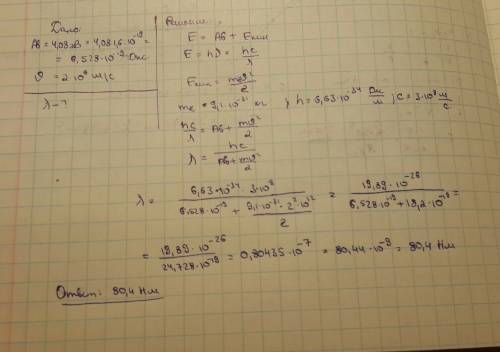 Дано:
Aв = 4,08 эВ = 4,08·1,6·10⁻¹⁹ =
= 6,528·10⁻¹⁹ Дж
υ = 2·10⁶ м/с
λ - ?
Решение:
E = Aв + Eкин
E = hν = hc/λ
Eкин = mυ²/2
me = 9,1·10⁻³¹ кг ; h = 6,63·10⁻³⁴ Дж/м ; c = 3·10⁸ м/с
hc/λ = Aв + mυ²/2
λ = hc/(Aв + mυ²/2)
λ = (6,63·10⁻³⁴ · 3·10⁸)/(6,528·10⁻¹⁹ + (9,1·10⁻³¹ · 2²·10¹²)/2) = (19,89·10⁻²⁶)/(6,528·10⁻¹⁹ + 18,2·10⁻¹⁹) =
= (19,89·10⁻²⁶)/(24,728·10⁻¹⁹) = 0,80435·10⁻⁷ = 80,44·10⁻⁹ = 80,4 Нм
Ответ: 80,4 Нм